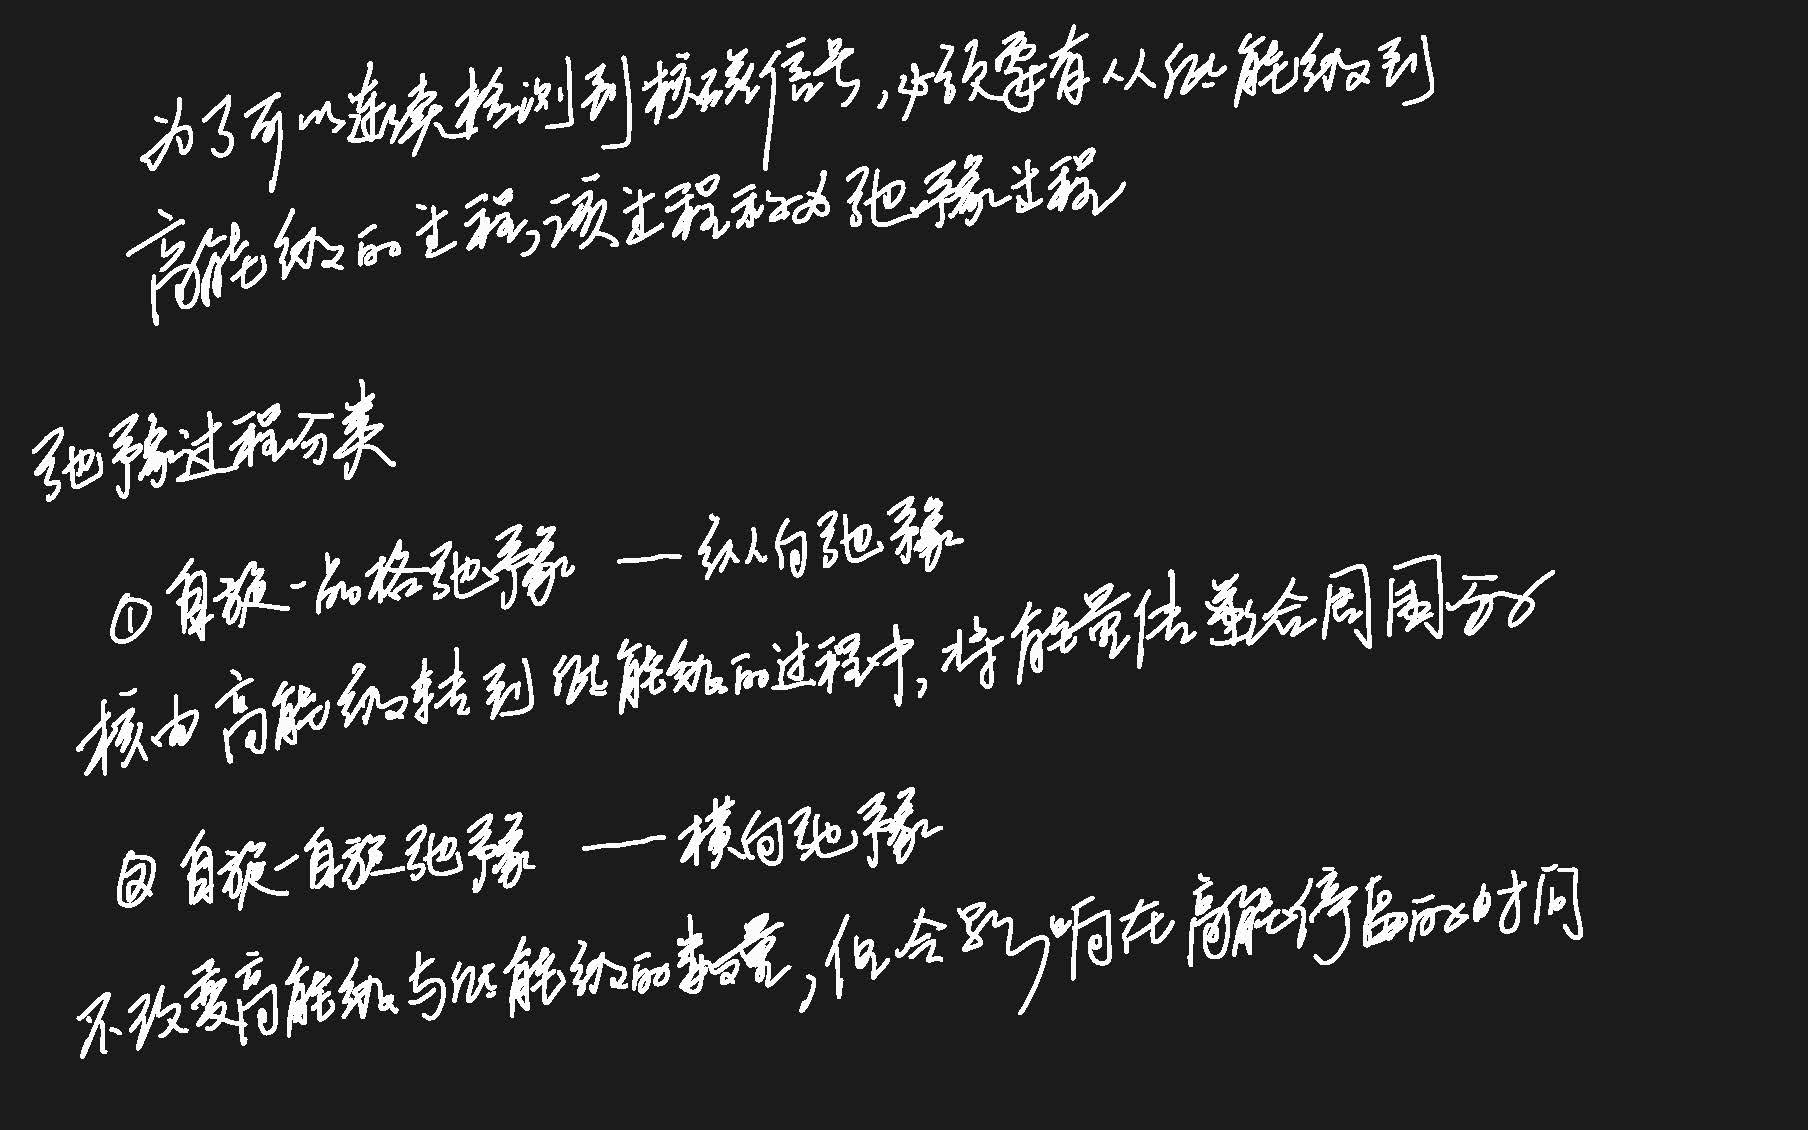 为了可以连续检测到核磁信号，必须要有从低能级到
高能级的过程，该过程称为弛豫过程
弛豫过程分类
① 自旋-晶格弛豫 — 纵向弛豫
核由高能级转到低能级的过程中，将能量传递给周围
② 自旋-自旋弛豫 — 横向弛豫
不改变高能级与低能级的数量，但会影响在高能停留的时间